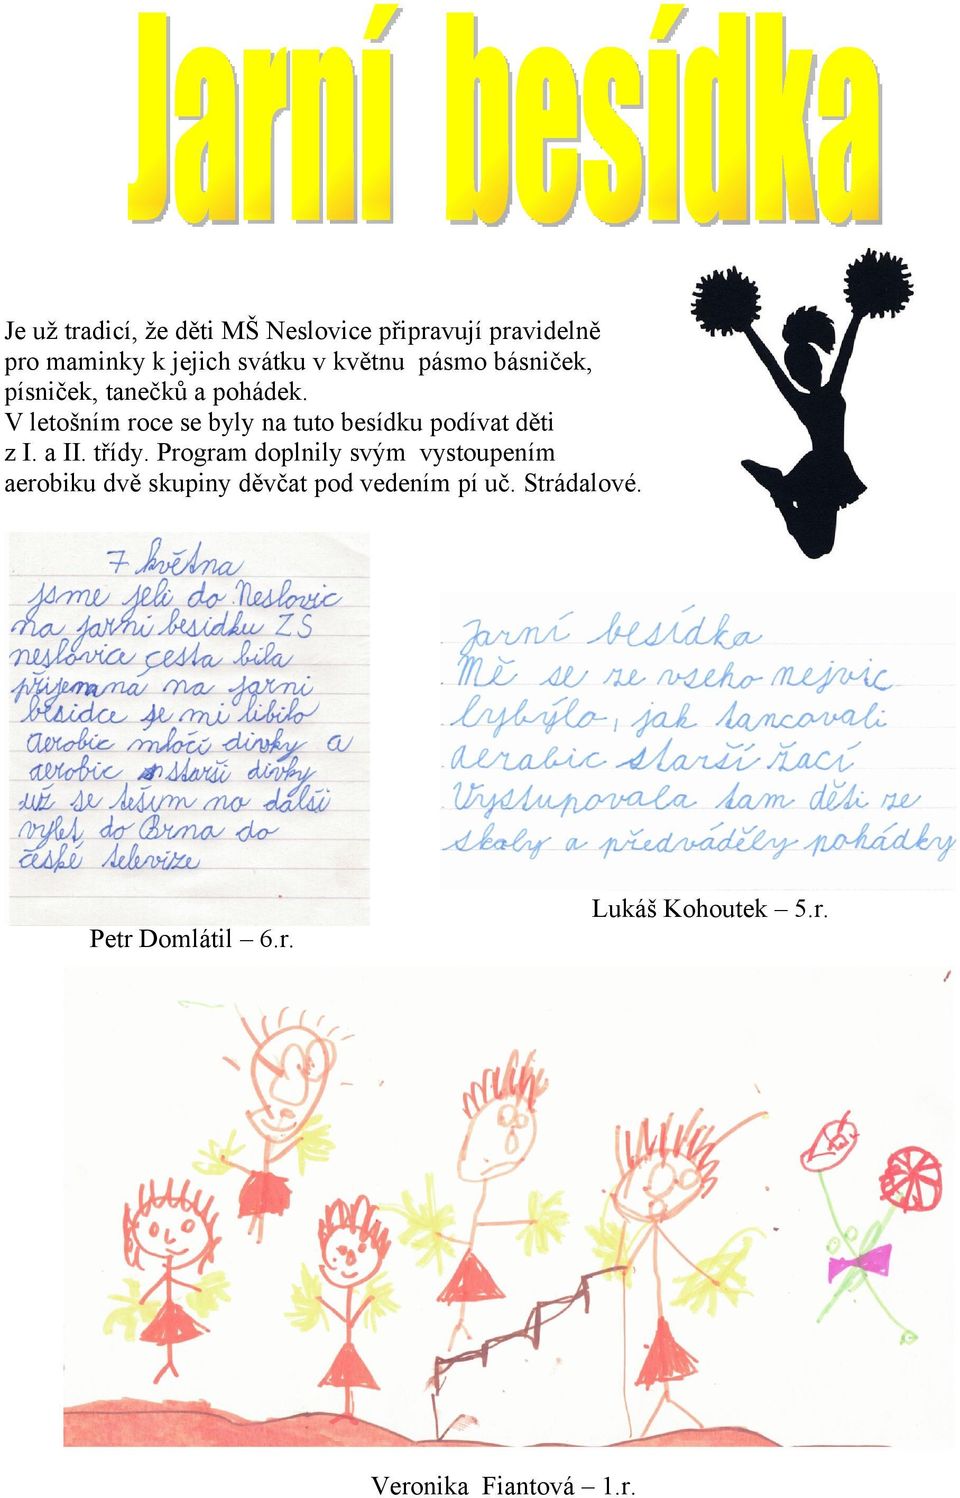 Jarní besídka
Je už tradicí, že děti MŠ Neslovice připravují pravidelně
pro maminky k jejich svátku v květnu pásmo básniček,
písniček, tanečků a pohádek.
V letošním roce se byly na tuto besídku podívat děti
z I. a II. třídy. Program doplnily svým vystoupením
aerobiku dvě skupiny děvčat pod vedením pí uč. Strádalové.
7 května
jsme jeli do Neslovic
na jarní besidku ZS
neslovice cesta bila
příjemná na jarni
besidce se mi libilo
aerobic mločí divky a
aerobic starši divky
už se tešim na dalši
vylet do Brna do
české televize
Petr Domlátil – 6.r.
Jarní besídka
Mě se ze vseho nejvic
lybýlo, jak tancovali
aerabic starší žací
Vystupovala tam děti ze
skoly a předváděly pohádky
Lukáš Kohoutek – 5.r.
Veronika Fiantová – 1.r.